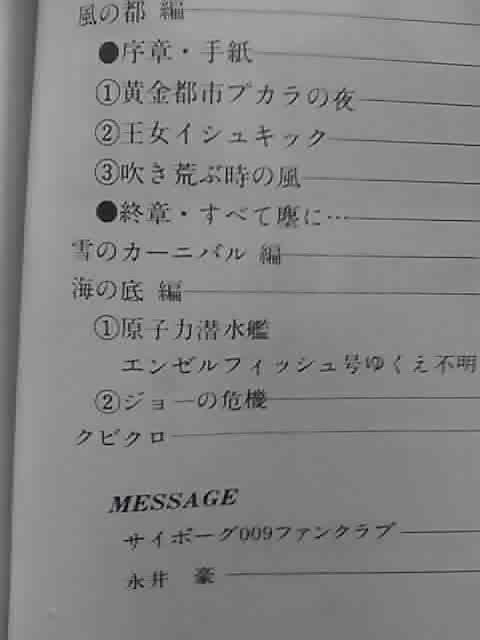 風の都 編
●序章・手紙
①黄金都市プカラの夜
②王女イシュキック
③吹き荒ぶ時の風
●終章・すべて塵に…
雪のカーニバル 編
海の底 編
①原子力潜水艦
エンゼルフィッシュ号ゆくえ不明
②ジョーの危機
クビクロ
MESSAGE
サイボーグ009ファンクラブ
永井 豪